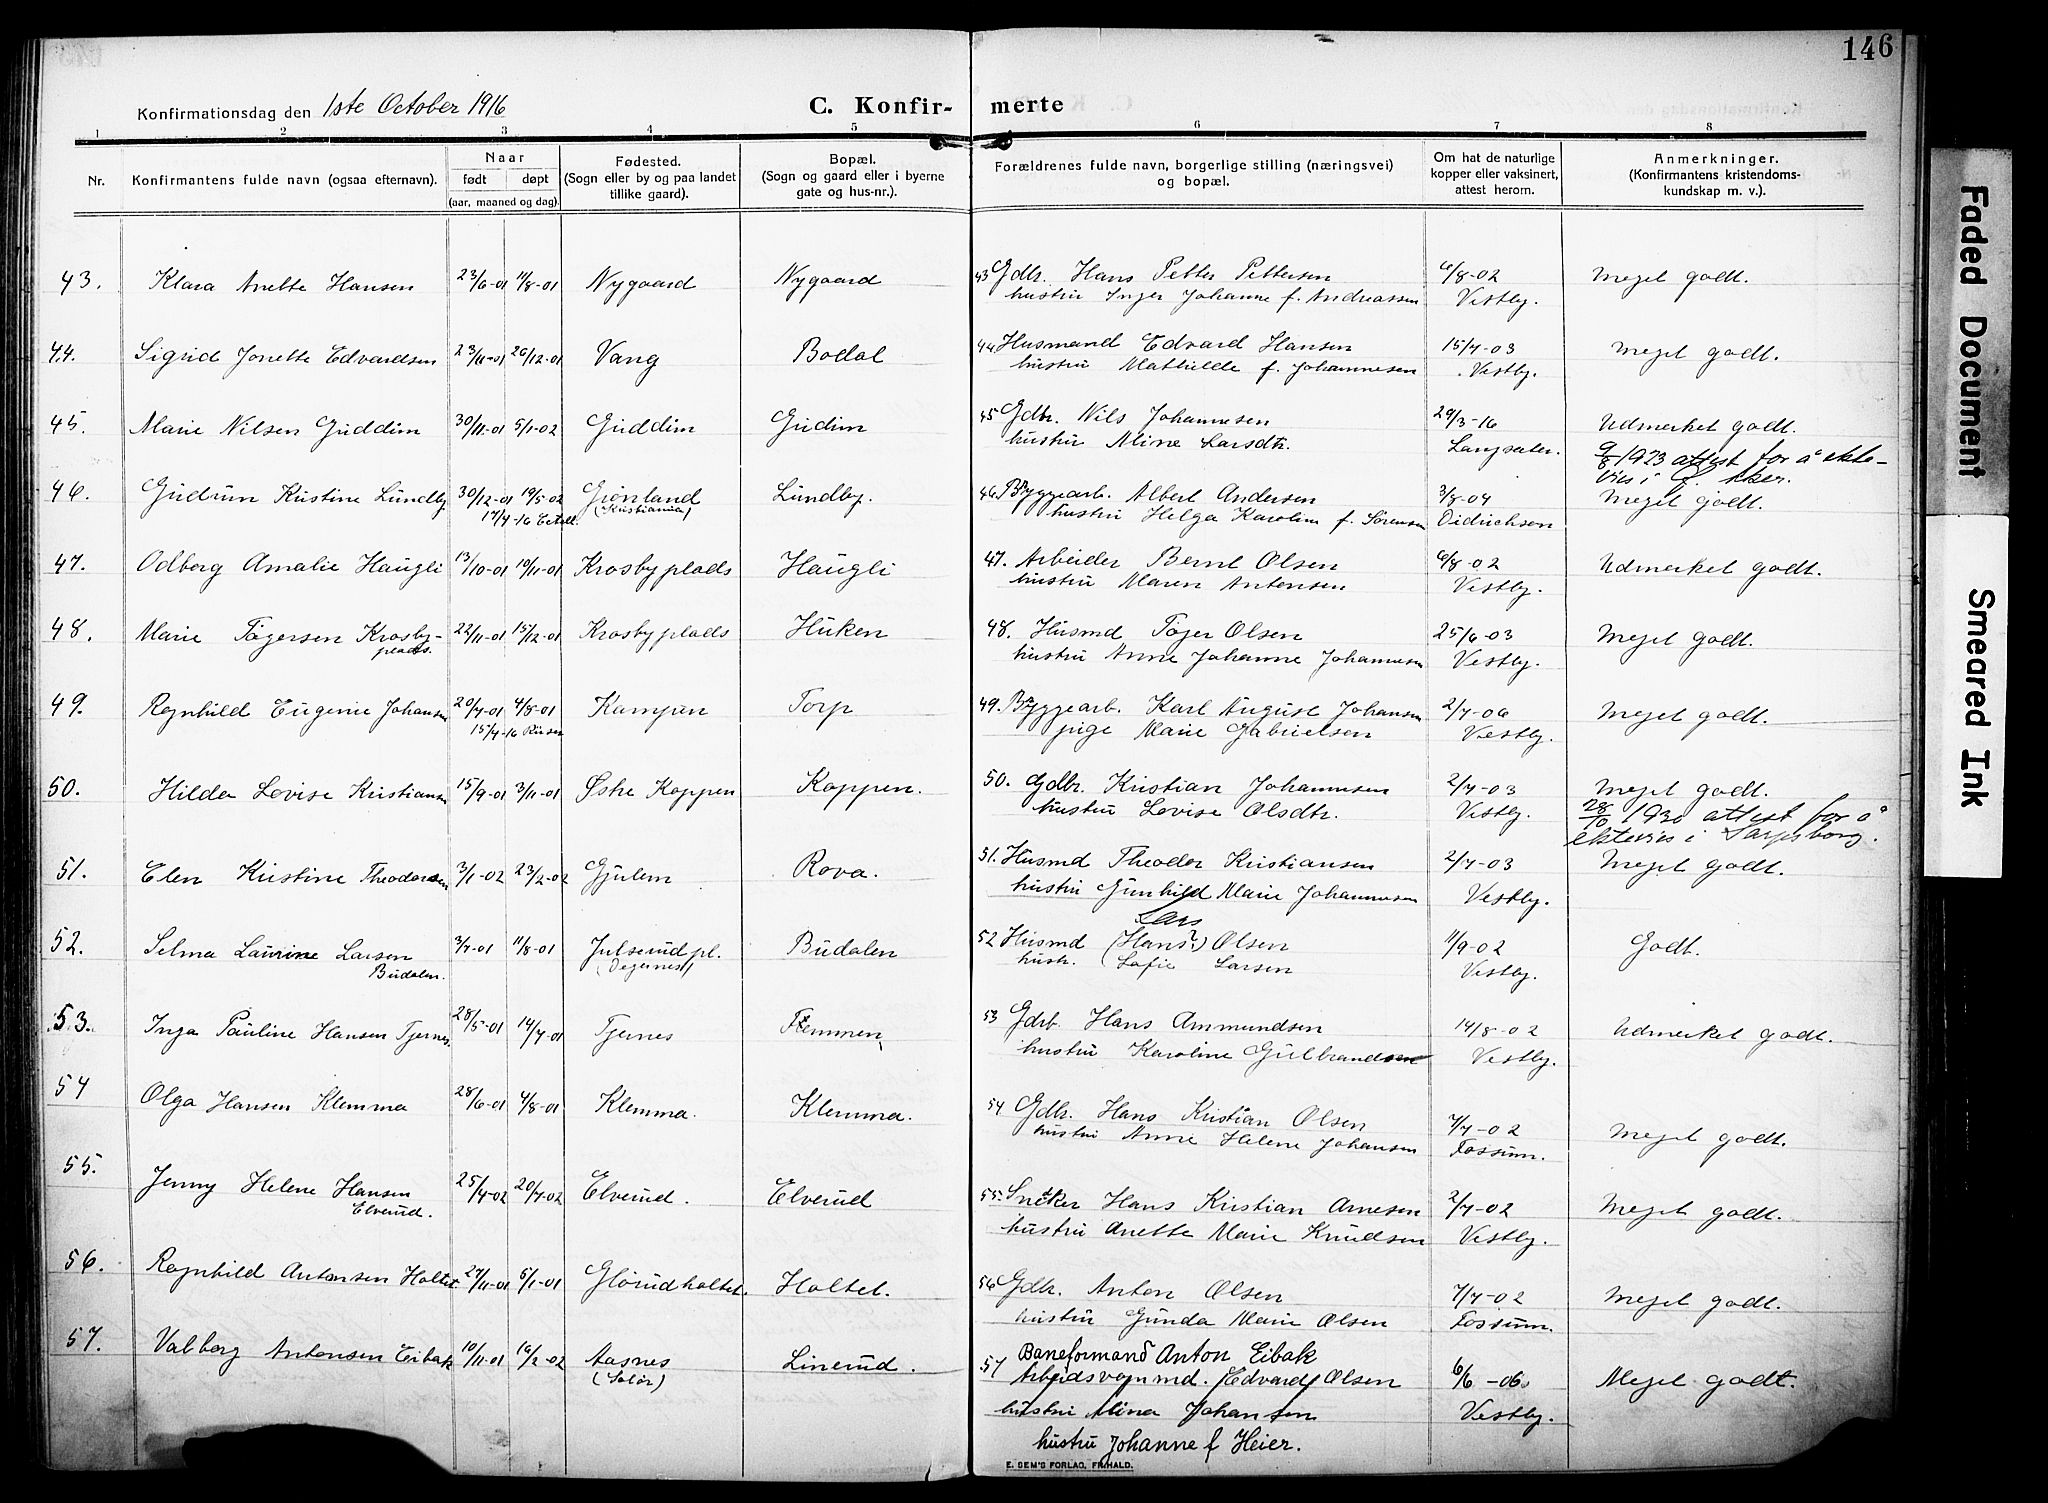 146
Konfirmationsdag den 1ste October 1916
C. Konfirmerte
1 2 3 4 5 6 7 8
Nr.
Konfirmantens fulde navn (ogsaa efternavn).
Naar
født døpt
(aar, maaned og dag).
Fødested.
(Sogn eller by og paa landet
tillike gaard).
Bopæl.
(Sogn og gaard eller i byerne
gate og hus-nr.).
Forældrenes fulde navn, borgerlige stilling (næringsvei)
og bopæl.
Om hat de naturlige
kopper eller vaksinert,
attest herom.
Anmerkninger.
(Konfirmantens kristendoms-
kundskap m. v.).
43. Klara Anette Hansen 23/6-01 11/8-01 Nygaard Nygaard 43 Gdbr. Hans Petter Pettersen 6/8-02 Meget godt.
hustru Inger Johanne f. Andreassen Vestby.
44. Sigrid Jonette Edvardsen 23/11-01 26/12-01 Vang Bodal 44 Husmand Edvard Hansen 15/7-03 Meget godt.
hustru Mathilde f. Johannesen Vestby.
45. Marie Nilsen Guddim 30/11-01 5/1-02 Guddim Gudim 45 Gdbr. Nils Johannesen 29/3-16 Udmerket godt.
hustru Aline Larsdtr. Langsæter. 9/8 1923 attest for å ekte-
vies i
46. Gudrun Kristine Lundby 30/12-01 19/5-02 Grønland Lundby. 46. Byggearb. Albert Andersen 3/8-04 Meget godt.
17/4-16 (Kristiania) hustru Helga Karoline f. Sørensen Didrichsen
47. Odborg Amalie Haugli 13/10-01 10/11-01 Krosbyplads Haugli 47. Arbeider Bernt Olsen 6/8-02 Udmerket godt.
hustru Maren Antonsen Vestby.
48. Marie Tøgersen Krosby- 22/11-01 15/12-01 Krosbyplads Huken 48. Husmd Tøger Olsen 25/6-03 Meget godt.
plads. hustru Anne Johanne Johannesen Vestby.
49. Ragnhild Eugenie Johansen 20/7-01 4/8-01 Kampen Torp 49. Byggearb. Karl August Johansen 2/7-06 Meget godt.
15/4-16 pige Marie Gabrielsen Vestby.
50. Hilda Lovise Kristiansen 15/9-01 3/11-01 Østre Koppen Koppen. 50. Gdbr. Kristian Johannesen 2/7-03 Meget godt.
hustru Lovise Olsdtr. Vestby. 28/10 1930 attest for å
ektevies i Sarpsborg.
51. Elen Kristine Theodorsen 3/1-02 23/2-02 Gjulem Rova. 51. Husmd Theodor Kristiansen 2/7-03 Meget godt.
hustru Gunhild Marie Johannesen Vestby.
Lars
52. Selma Laurine Larsen 3/7-01 11/8-01 Julserud pl. Budalen 52 Husmd (Hans?) Olsen 11/9-02 Godt.
Budalen. (Degernes) hustr. Sofie Larsen Vestby.
53. Inga Pauline Hansen Tjernes 28/5-01 14/7-01 Tjernes Flemmen 53 Gdb. Hans Ammundsen 14/8-02 Udmerket godt.
hustru Karoline Gulbrandsen Vestby.
54 Olga Hansen Klemma 28/6-01 4/8-01 Klemma. Klemma. 54 Gdbr. Hans Kristian Olsen 7/7-02 Meget godt.
hustru Anne Helene Johansen Fossum.
55. Jenny Helene Hansen 25/4-02 20/7-02 Elverud. Elverud 55. Snekker Hans Kristian Arnesen 2/7-02 Meget godt.
Elverud. hustru Anette Marie Knudsen Vestby.
56. Ragnhild Antonsen Holtet 27/11-01 5/1-01 Glørudholtet. Holtet. 56 Gdbr. Anton Olsen 7/7-02 Meget godt.
hustru Gunda Marie Olsen Fossum.
57. Valborg Antonsen Eibak 10/11-01 16/2-02 Aasnes Linerud. Baneformand Anton Eibak
(Solør) 57 Arbeidsvognmd. (Edvard) Olsen 6/6-06 Meget godt.
hustru Alina Johansen Vestby.
hustru Johanne f Heier.
E. SEM'S FORLAG, FR.HALD.
Faded Document
Smeared Ink